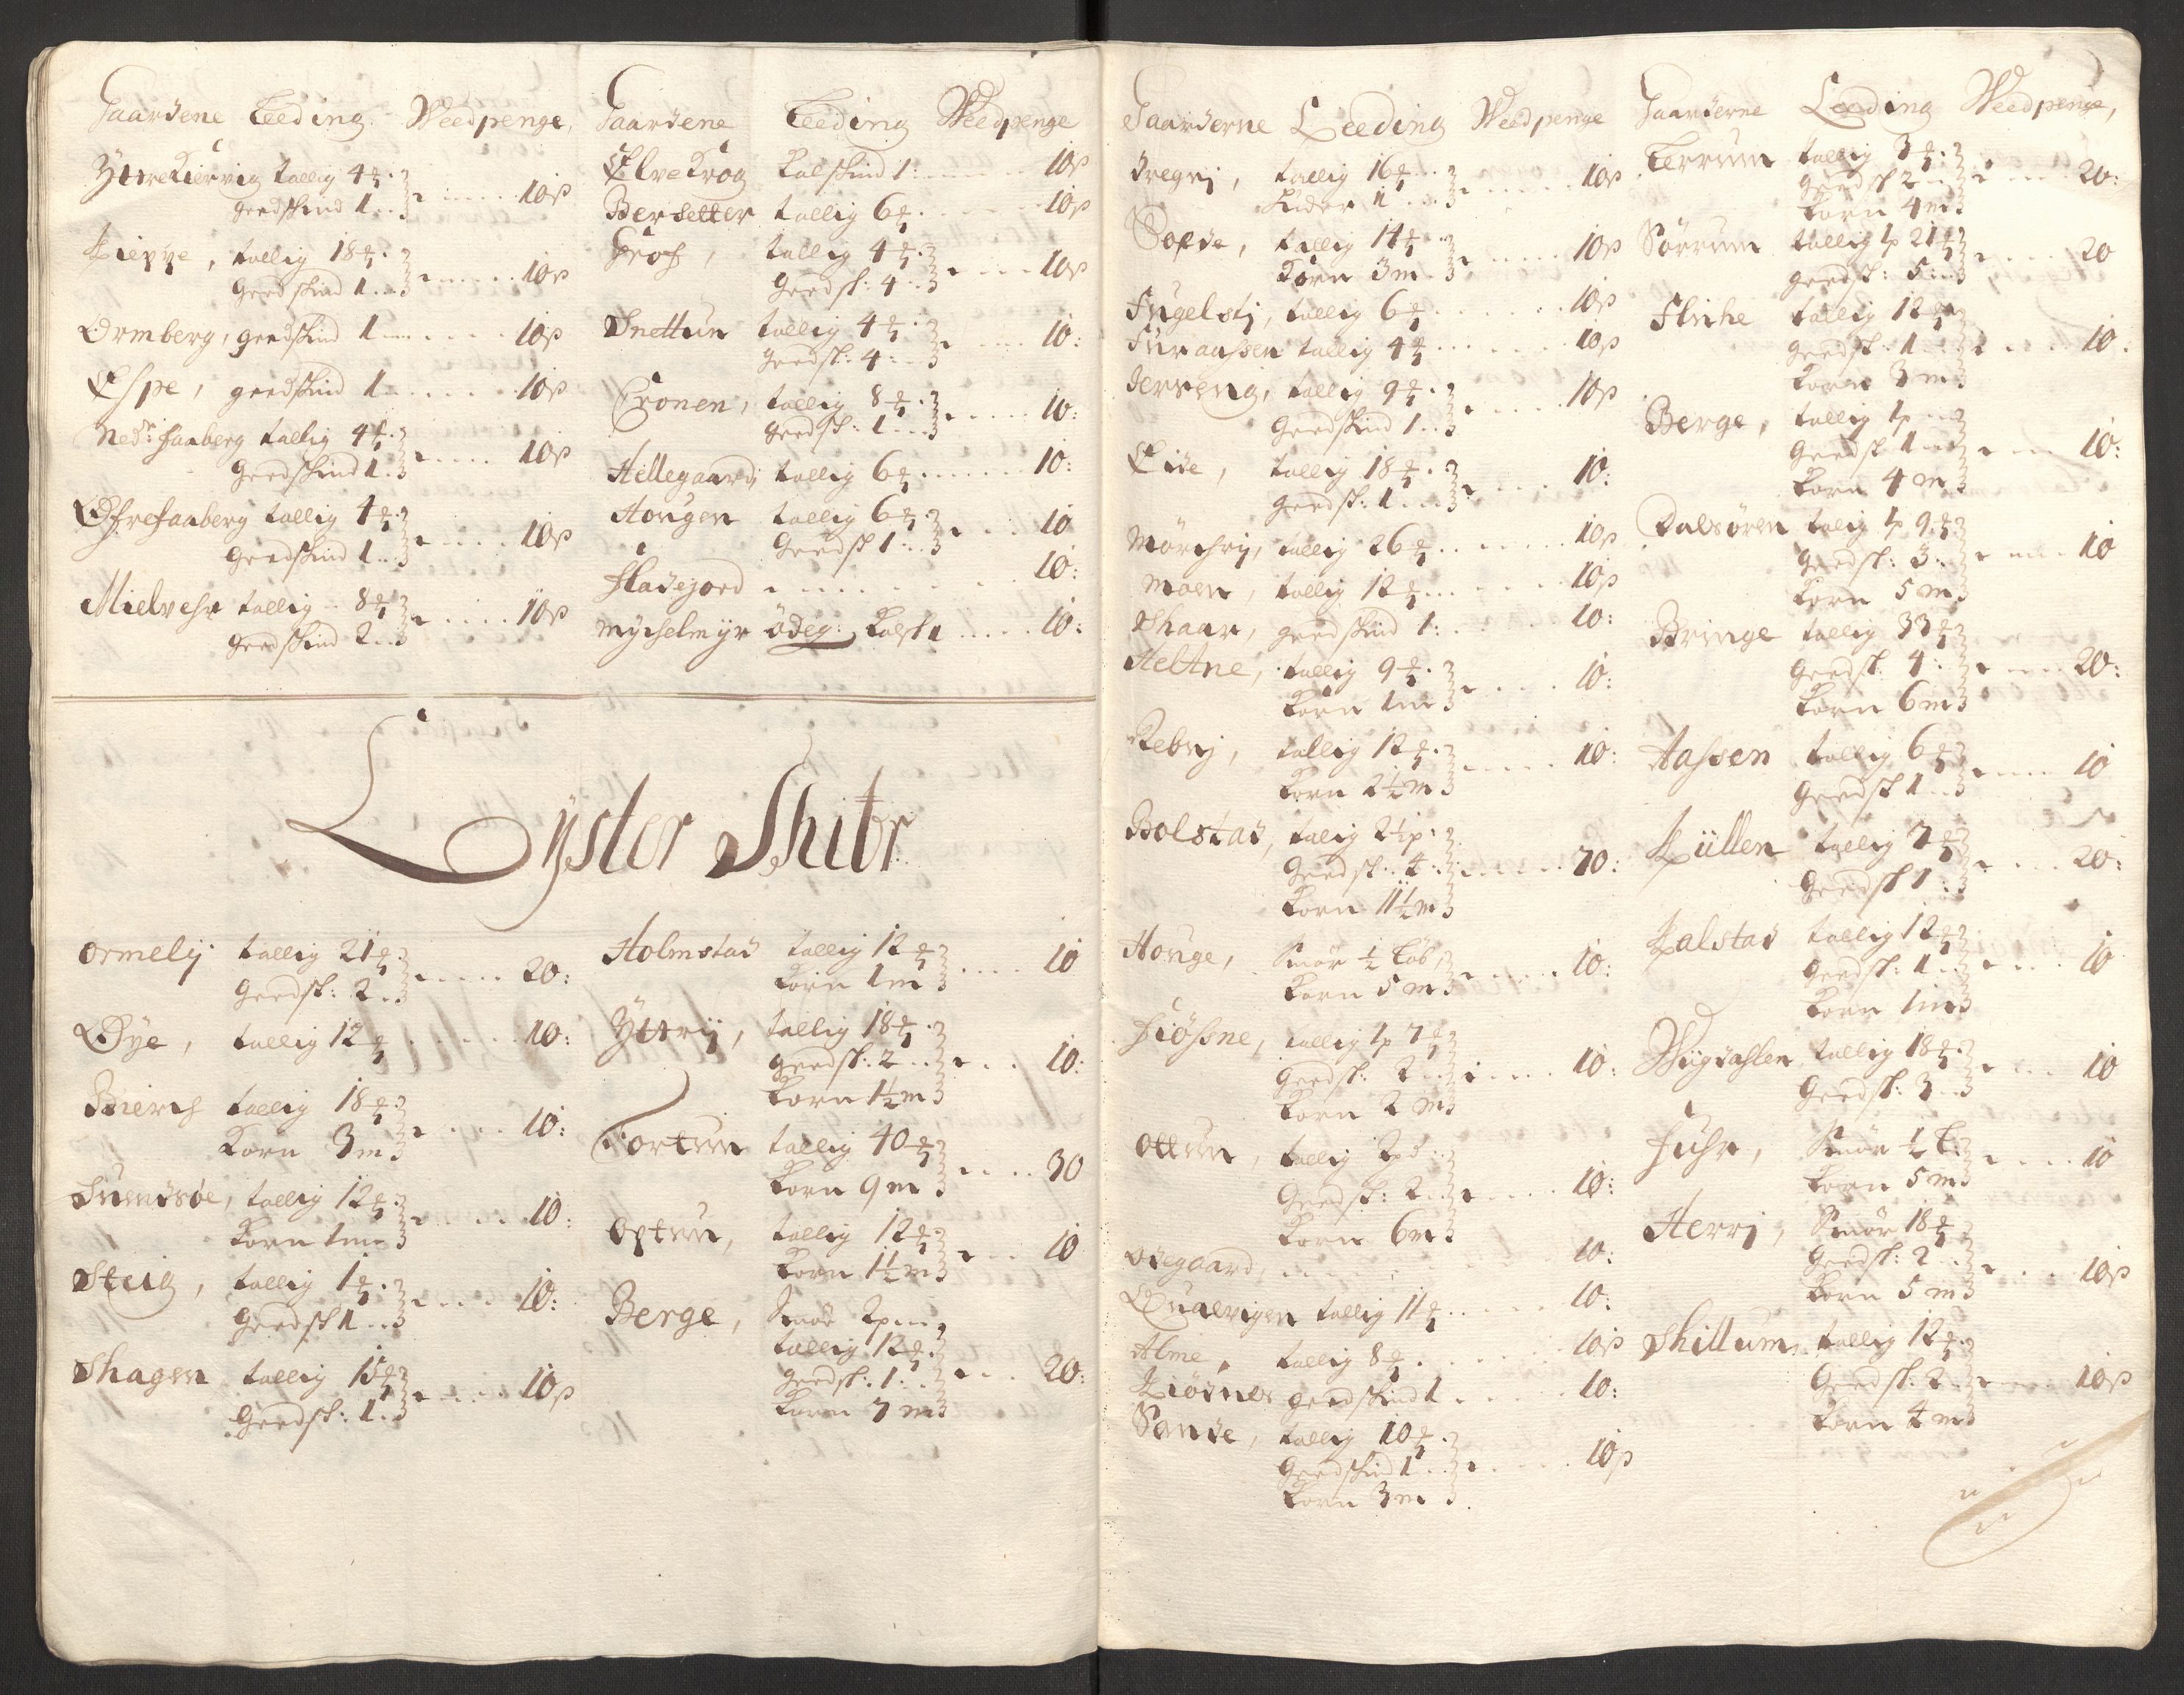 Gaardene Leeding Weedpenge,
Yttrekiervig tallig 4 ℔
geedskind 1 10ß
Kieppe, tallig 18 ℔
Geedskind 1 10ß
Ormberg, geedskind 1 10ß
Espe, geedskind 1 10ß
Nedr: Faaberg tallig 4 ℔
Geedskind 1 10ß
Øfrefaaberg tallig 4 ℔
Geedskind 1 10ß
Mielvehr tallig 8 ℔
geedskind 2 10ß
Gaardene Leeding Weedpenge
Elvekrog kalfskind 1: 10ß
Bersetter tallig 6 ℔ 10ß
Grof, tallig 4 ℔
Geedsk: 4 10ß
Snettun tallig 4 ℔
geedsk: 4 10:
Cronen, tallig 8 ℔
geedsk: 1 10:
Hellegaard tallig 6 ℔ 10:
Hougen tallig 6 ℔
Geedsk 1 10
Fladejord 10:
Mychelmyr ödeg: Kalfsk 1 10:
Lyster Shibr
Ormelij tallig 21 ℔
Geedsk: 2 20:
Øye, tallig 12 ℔ 10:
Bierch tallig 18 ℔
Korn 3 m 10:
Sundsøe, tallig 12 ℔
Korn 1 m 10:
Steig, tallig 1 ℔
Geedsk 1 10:
Shagen tallig 15 ℔
Geedsk: 1 10ß
Holmstad tallig 12 ℔
Korn 1 m 10
Yttrij, tallig 18 ℔
geedsk: 2
Korn 1½ m 10:
Fortun tallig 40 ℔
Korn 9 m 30
Optun, tallig 12 ℔
Korn 1½ m 10
Berge, Smör 2p
tallig 12 ℔
geedsk: 1
Korn 7 m 20:
Gaarderne Leeding Weedpenge
Dregnj, tallig 16 ℔
Huder 1 10ß
Sopde, tallig 14 ℔
Korn 3 m 10ß
Fugelstj, tallig 6 ℔ 10ß
Furaassen tallig 4 ℔ 10ß
Jerseng, tallig 9 ℔
Geedskind 1 10ß
Eide, tallig 18 ℔
geedsk: 1 10:
Mörchrij, tallig 26 ℔ 10ß
Moen, tallig 12 ℔ 10ß
Shaar, geedskind 1: 10:
Heltne, tallig 9 ℔
Korn 1 m 10:
Rebnj, tallig 12 ℔
Korn 2½ m 10:
Bolstad, tallig 2½p
Geedsk: 4
Korn 11½ m 70:
Houge, Smör ½ Löb,
Korn 5 m 10:
Fiösne, tallig 1p 7 ℔
Geedsk: 2
Korn 2 m 10:
Ottun, tallig 2pd
Geedsk: 2
Korn 6 m 10:
Ødegaard, 10:
Qualvigen tallig 11 ℔ 10:
Alme, tallig 8 ℔ 10ß
Kiösnes geedskind 1 10:
Sande, tallig 10 ℔
Geedskind 1
Korn 3 m 10ß
Gaarderne Leeding Weedpenge,
Lerrum tallig 3 ℔
geedsk 2
Korn 4 m 20:
Sörrum tallig 1p 21 ℔
geedsk: 5 20
Flinhe tallig 12 ℔
geedsk: 1
Korn 3 m 10:
Berge, tallig 1p
Geedsk 1
Korn 4 m 10:
Dalsøren talig 1p 9 ℔
Geedsk: 3
Korn 5 m 10
Bringe tallig 33 ℔
geedsk: 4
Korn 6 m 20:
Aassen tallig 6 ℔
Geedsk 1 10
Küllen tallig 7 ℔
Geedsk 1 20:
Kalstad tallig 12 ℔
Geedsk: 1
Korn 1 m 10
Wigdahlen tallig 18 ℔
Geedsk: 3 10
Fuhr, Smör ½ L:
Korn 5 m 10
Herrj, Smör 18 ℔
Geedsk: 2
Korn 5 m 10ß
Shillum, tallig 12 ℔
Geedsk: 2
Korn 4 m 10ß